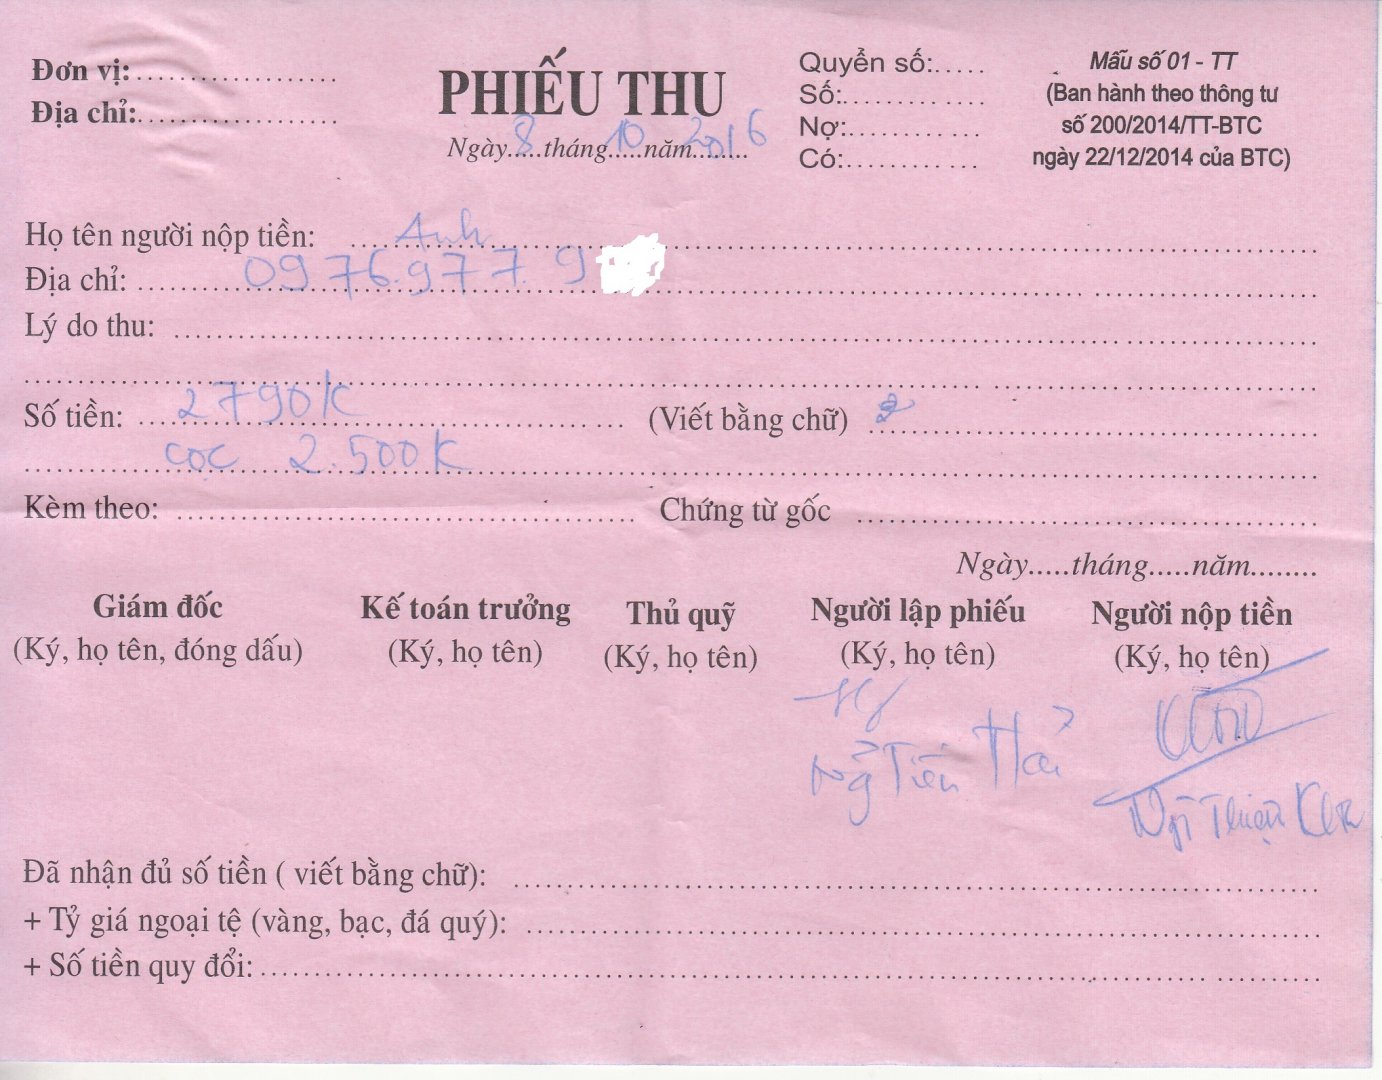 Đơn vị:
PHIẾU THU
Quyển số:
Mẫu số 01 - TT
Địa chỉ:
Số:
(Ban hành theo thông tư
Nợ:
số 200/2014/TT-BTC
Ngày 8 tháng 10 năm 2016
Có:
ngày 22/12/2014 của BTC)
Họ tên người nộp tiền: Anh
Địa chỉ: 0976.977.9
Lý do thu:
Số tiền: 2790K (Viết bằng chữ)
cọc 2.500K
Kèm theo: Chứng từ gốc
Ngày.....tháng.....năm........
Giám đốc Kế toán trưởng Thủ quỹ Người lập phiếu Người nộp tiền
(Ký, họ tên, đóng dấu) (Ký, họ tên) (Ký, họ tên) (Ký, họ tên) (Ký, họ tên)
Tiến
Đã nhận đủ số tiền ( viết bằng chữ):
+ Tỷ giá ngoại tệ (vàng, bạc, đá quý):
+ Số tiền quy đổi: